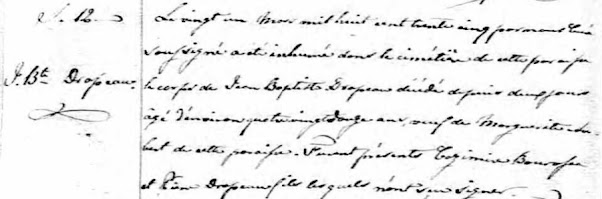 S. 12
J. Bte Drapeau.
Le vingt un Mars mil huit cent trente cinq par nous Curé
soussigné a été inhumé dans le cimetière de cette paroisse
le corps de Jean Baptiste Drapeau décédé depuis deux jours
âgé d'environ quatre vingt douze ans, veuf de Marguerite
bert de cette paroisse. Furent présents Bourassa
et Drapeau fils lesquels n'ont su signer.